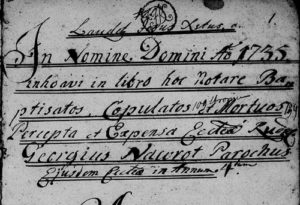 1.
In Nomine Domini Ao 1735
inhoavi in libro hoc Notare Ba,
ptisatos, Copulatos et Mortuos
Percepta et Expensa Eccleae
Georgius Nawrot Parochus
Ejusdem Eccleae in Annum 4tum